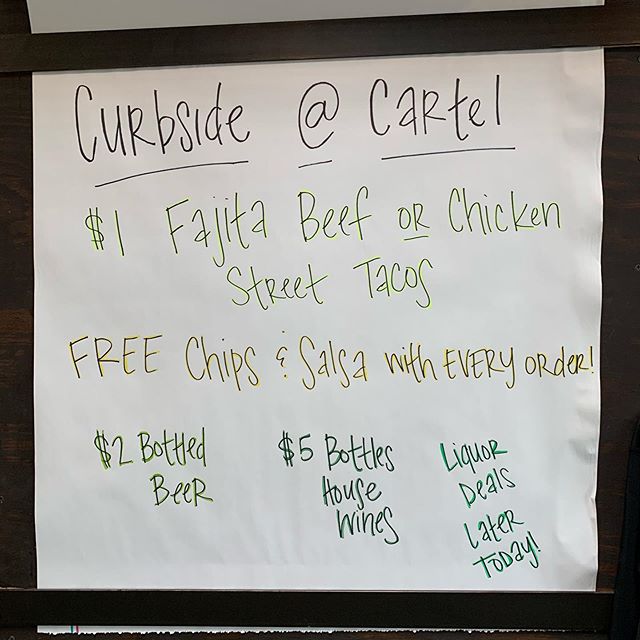 Curbside @ Cartel
$1 Fajita Beef or Chicken
Street Tacos
FREE Chips & Salsa with EVERY order!
$2 Bottled
Beer
$5 Bottles
House
Wines
Liquor
Deals
Later
Today!